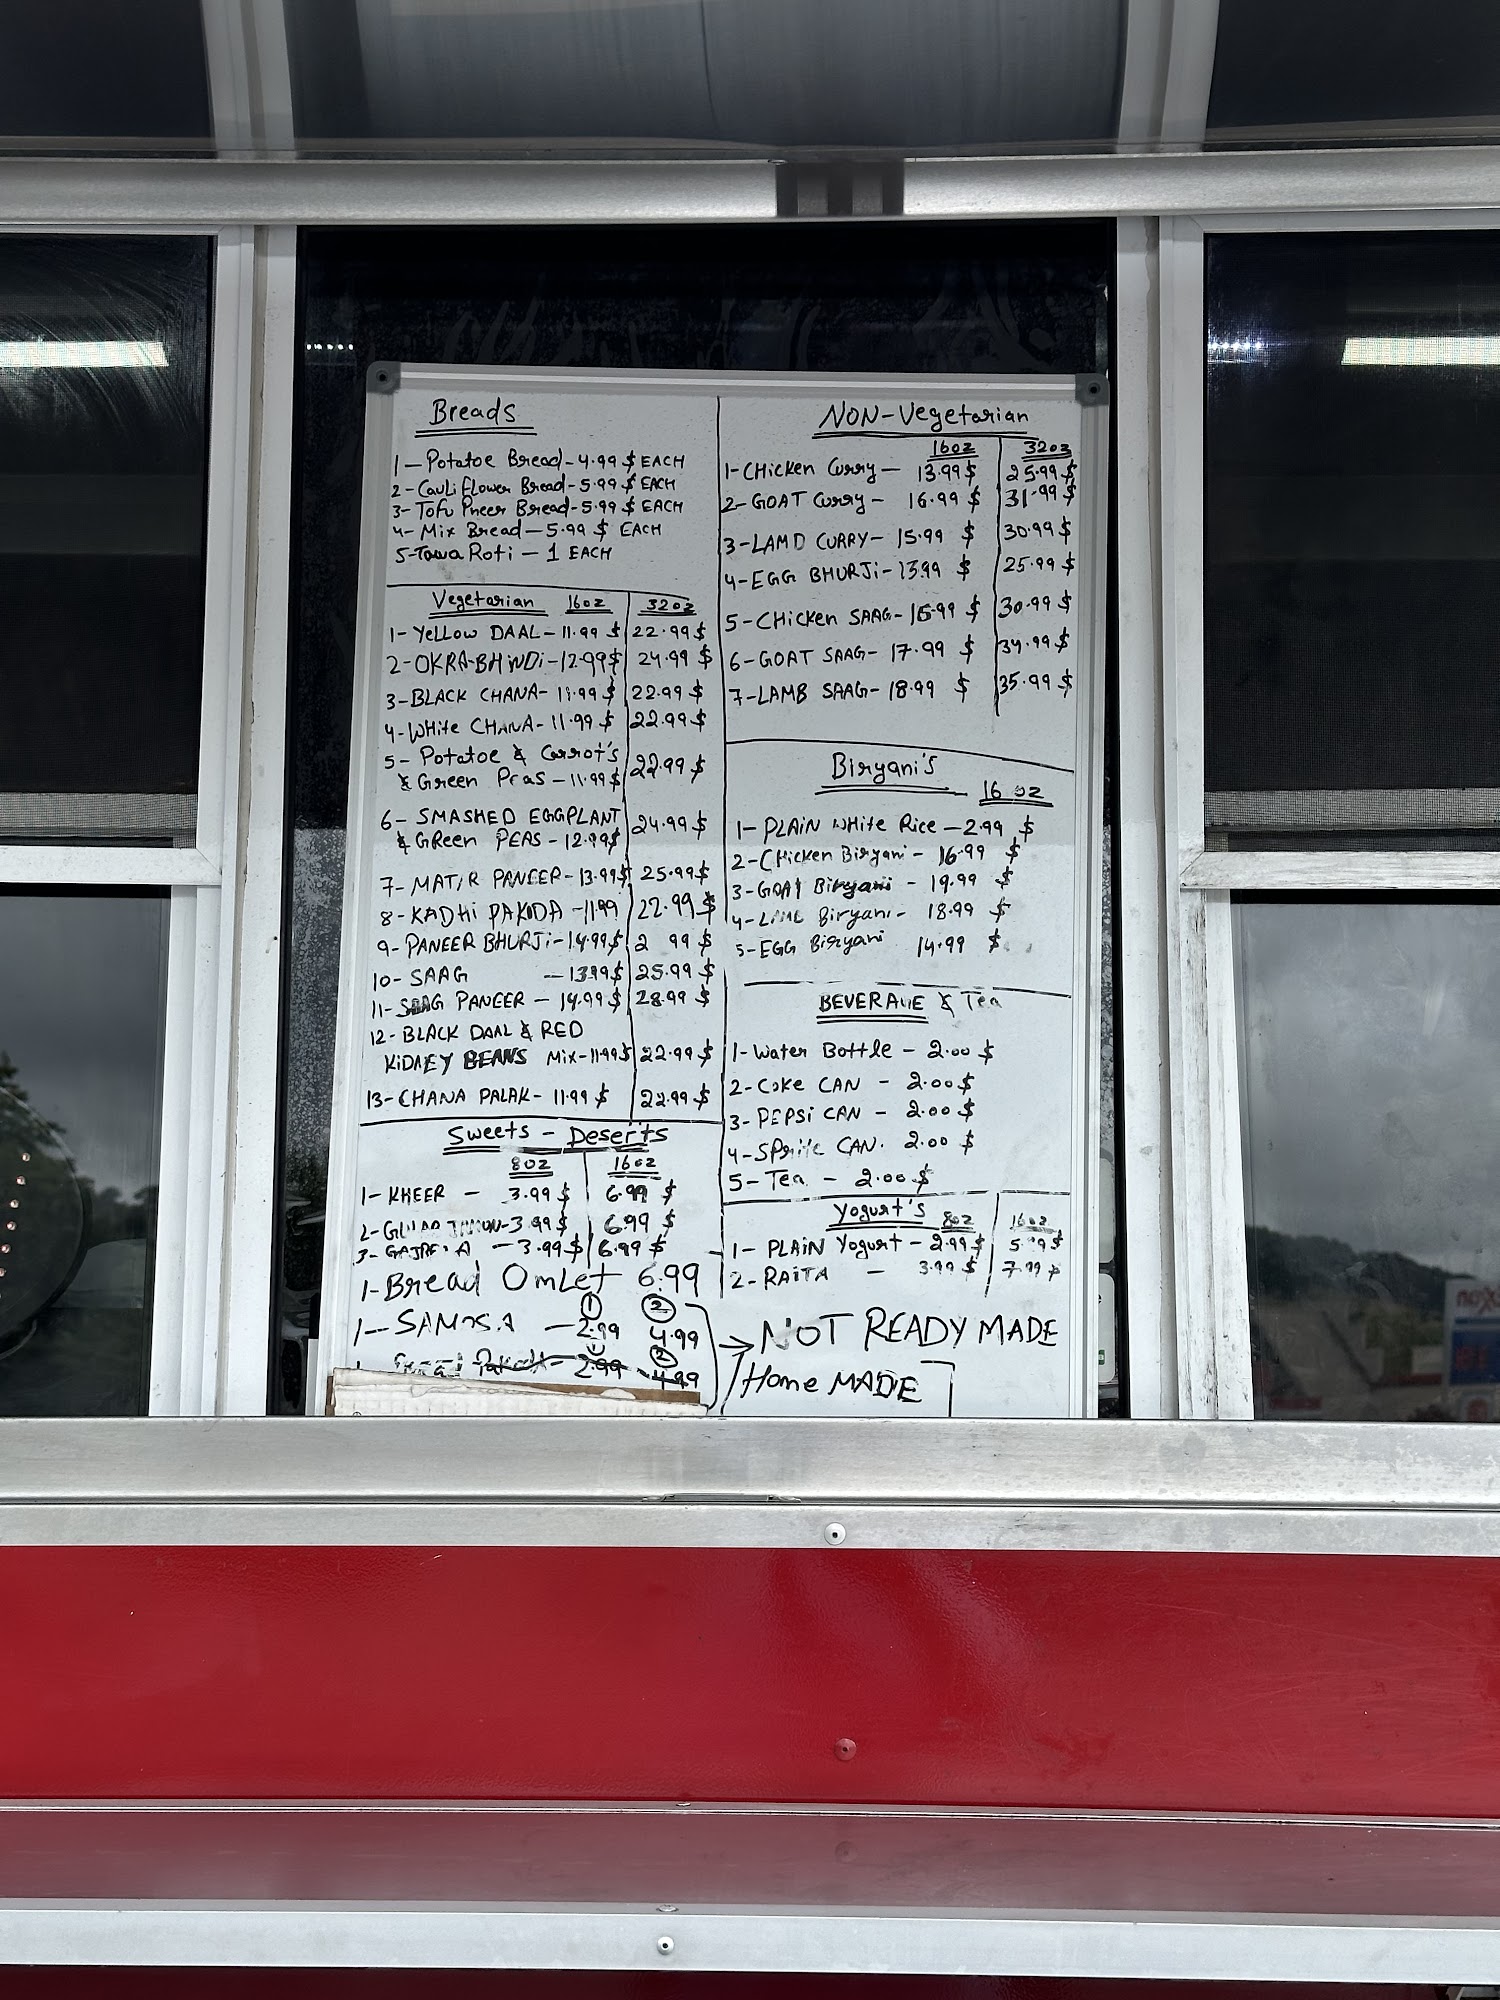 Breads
1-Potatoe Bread-4.99 $ EACH
2-Cauliflower Bread-5.99 $ EACH
3-Tofu Pneer Bread-5.99 $ EACH
4-Mix Bread-5.99 $ EACH
5-Tawa Roti-1 EACH
Vegetarian 16oz 32oz
1-Yellow DAAL-11.99 $ 22.99 $
2-OKRA-BHINDI-12.99$ 24.99 $
3-BLACK CHANA-11.99 $ 22.99 $
4-WHite CHANA-11.99 $ 22.99 $
5-Potatoe & Carrot's
& Green Peas-11.99 $ 22.99 $
6-SMASHED EGGPLANT
& GReen PEAS-12.99$ 24.99 $
7-MATAR PANEER-13.99$ 25.99$
8-KADHI PAKODA-11.99 22.99 $
9-PANEER BHURJi-14.99$ 2 99 $
10-SAAG -13.99$ 25.99 $
11-SAAG PANEER-14.99$ 28.99 $
12-BLACK DAAL & RED
KIDNEY BEANS Mix-11.99$ 22.99 $
13-CHANA PALAK-11.99 $ 22.99 $
Sweets-Deserts
8oz 16oz
1-KHEER - 3.99 $ 6.99 $
2-GULAB JAMUN-3.99$ 6.99 $
3- -3.99$ 6.99 $
1-Bread Omlet 6.99
1 2
1-SAMOSA -2.99 4.99
1 2
1- Pakoda-2.99 4.99
NON-Vegetarian
16oz 32oz
1-CHicken Curry-13.99$ 25.99$
2-GOAT Curry-16.99 $ 31.99 $
3-LAMD CURRY-15.99 $ 30.99 $
4-EGG BHURJi-13.99 $ 25.99 $
5-CHicken SAAG- $ 30.99 $
6-GOAT SAAG-17.99 $ 34.99 $
7-LAMB SAAG-18.99 $ 35.99 $
Biryani's
16 oz
1-PLAIN WHite Rice-2.99 $
2-CHicken Biryani-16.99 $
3-GOAT Biryani-19.99 $
4- Biryani-18.99 $
5-EGG Biryani 14.99 $
BEVERAGE & Tea
1-Water Bottle-2.00 $
2-Coke CAN-2.00 $
3-PEPSi CAN-2.00 $
4-SPrite CAN. 2.00 $
5-Tea-2.00 $
Yogurt's 8oz 16oz
1-PLAIN Yogurt-2.99 $ 5.99 $
2-RAITA - 3.99 $ 7.99 $
NOT READY MADE
Home MADE